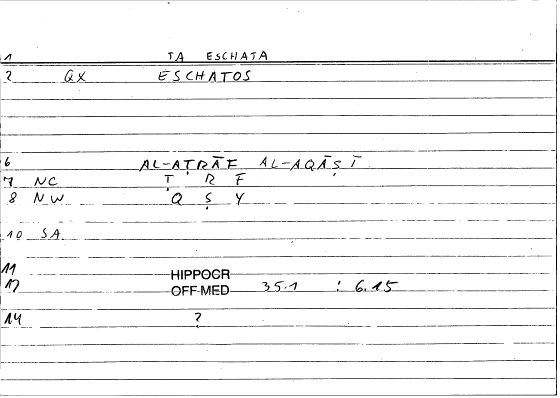 1 TA ESCHATA
2 QX ESCHATOS
6 AL-AṬRĀF AL-AQĀṢĪ
7 NC Ṭ R F
8 NW Q Ṣ Y
10 SA
11 HIPPOCR
12 OFF-MED 35.1 : 6.15
14 ?